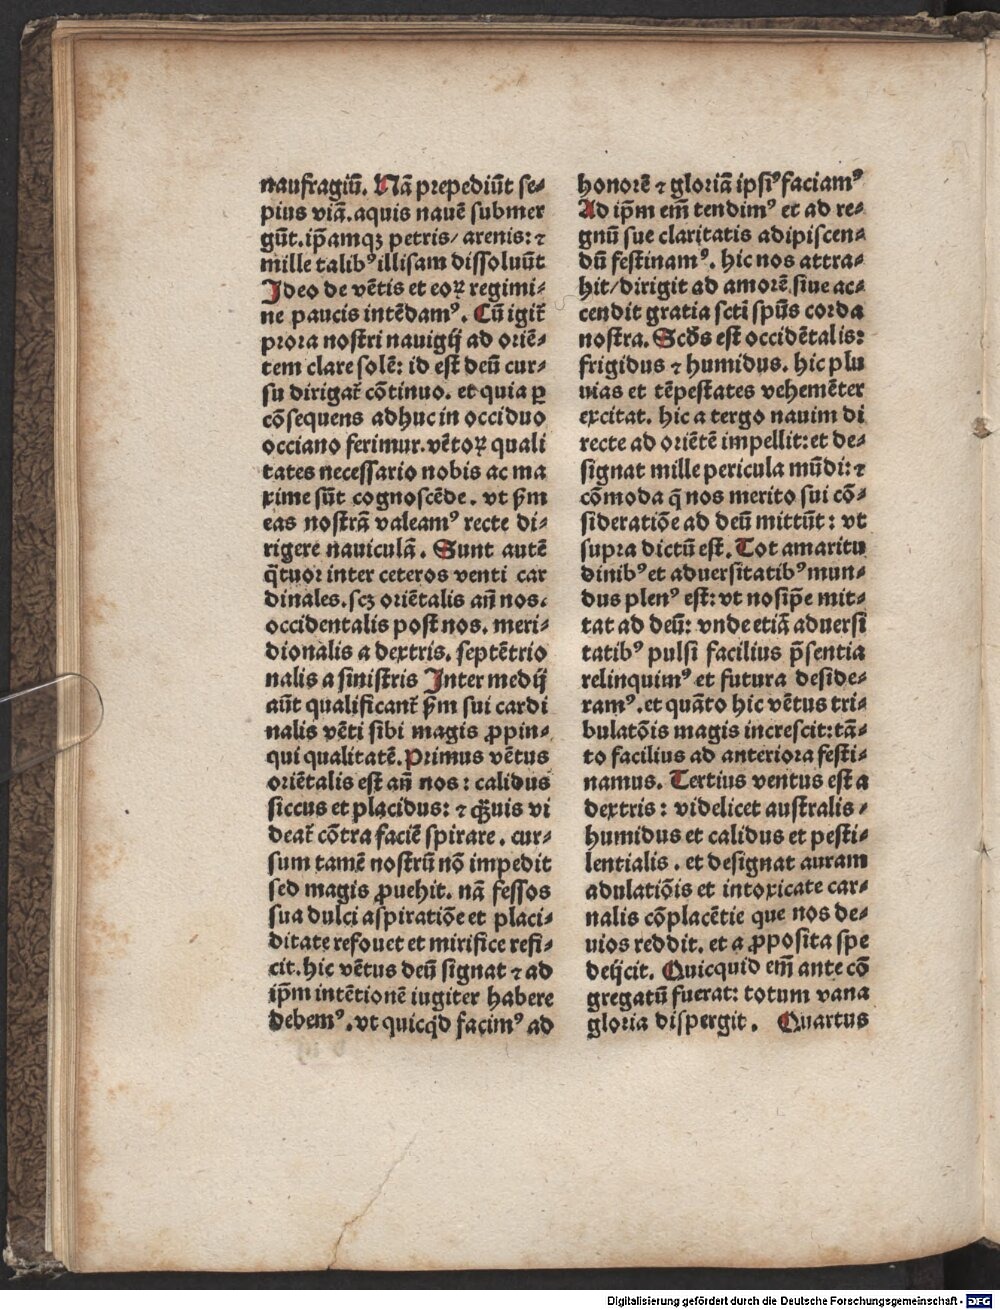 naufragiū. Nā prepediūt se⸗
pius viā. aquis nauē submer
gūt. ip̄amqꝫ petris/ arenis: ⁊
mille talibꝰ illisam dissoluūt
Ideo de vētis et eoꝝ regimi⸗
ne paucis intēdamꝰ. Cū igit᷑
prora nostri nauigij ad oriē⸗
tem clare solē: id est deū cur⸗
su dirigat᷑ cōtinuo. et quia ꝑ
cōsequens adhuc in occiduo
occiano ferimur. vētoꝝ quali
tates necessario nobis ac ma
xime sūt cognoscēde. vt ẜm
eas nostrā valeamꝰ recte di⸗
rigere nauiculā. Sunt autē
q̄tuor inter ceteros venti car
dinales. scꝫ oriētalis an̄ nos.
occidentalis post nos. meri⸗
dionalis a dextris. septētrio
nalis a sinistris Intermedij
aūt qualificant᷑ ẜm sui cardi
nalis vēti sibi magis ꝓpin⸗
qui qualitatē. Primus vētus
oriētalis est an̄ nos: calidus
siccus et placidus: ⁊ qꝫuis vi
deat᷑ cōtra faciē spirare. cur⸗
sum tamē nostrū nō impedit
sed magis ꝓuehit. nā fessos
sua dulci aspiratiōe et placi⸗
ditate refouet et mirifice refi⸗
cit. hic vētus deū signat ⁊ ad
ip̄m intētionē iugiter habere
debemꝰ. vt quicqd facimꝰ ad
honorē ⁊ gloriā ipsiꝰ faciamꝰ
Ad ip̄m em̄ tendimꝰ et ad re⸗
gnū sue claritatis adipiscen⸗
dū festinamꝰ. hic nos attra⸗
hit/ dirigit ad amorē siue ac⸗
cendit gratia sct̄i sp̄us corda
nostra. Scd̄s est occidētalis:
frigidus ⁊ humidus. hic plu
uias et tēpestates vehemēter
excitat. hic a tergo nauim di
recte ad oriētē impellit: et de⸗
signat mille pericula mūdi: ⁊
cōmoda q̄ nos merito sui cō⸗
sideratiōe ad deū mittūt: vt
supra dictū est. Tot amaritu
dinibꝰ et aduersitatibꝰ mun⸗
dus plenꝰ est: vt nosip̄e mit⸗
tat ad deū: vnde etiā aduersi
tatibꝰ pulsi facilius p̄sentia
relinquimꝰ et futura deside⸗
ramꝰ. et quāto hic vētus tri⸗
bulatōis magis increscit: tā⸗
to facilius ad anteriora festi⸗
namus. Tertius ventus est a
dextris: videlicet australis⸗
humidus et calidus et pesti⸗
lentialis. et designat auram
adulatiōis et intoxicate car⸗
nalis cōplacētie que nos de⸗
uios reddit. et a ꝓposita spe
deijcit. Quicquid em̄ ante cō
gregatū fuerat: totum vana
gloria dispergit. Quartus
Digitalisierung gefördert durch die Deutsche Forschungsgemeinschaft - DFG